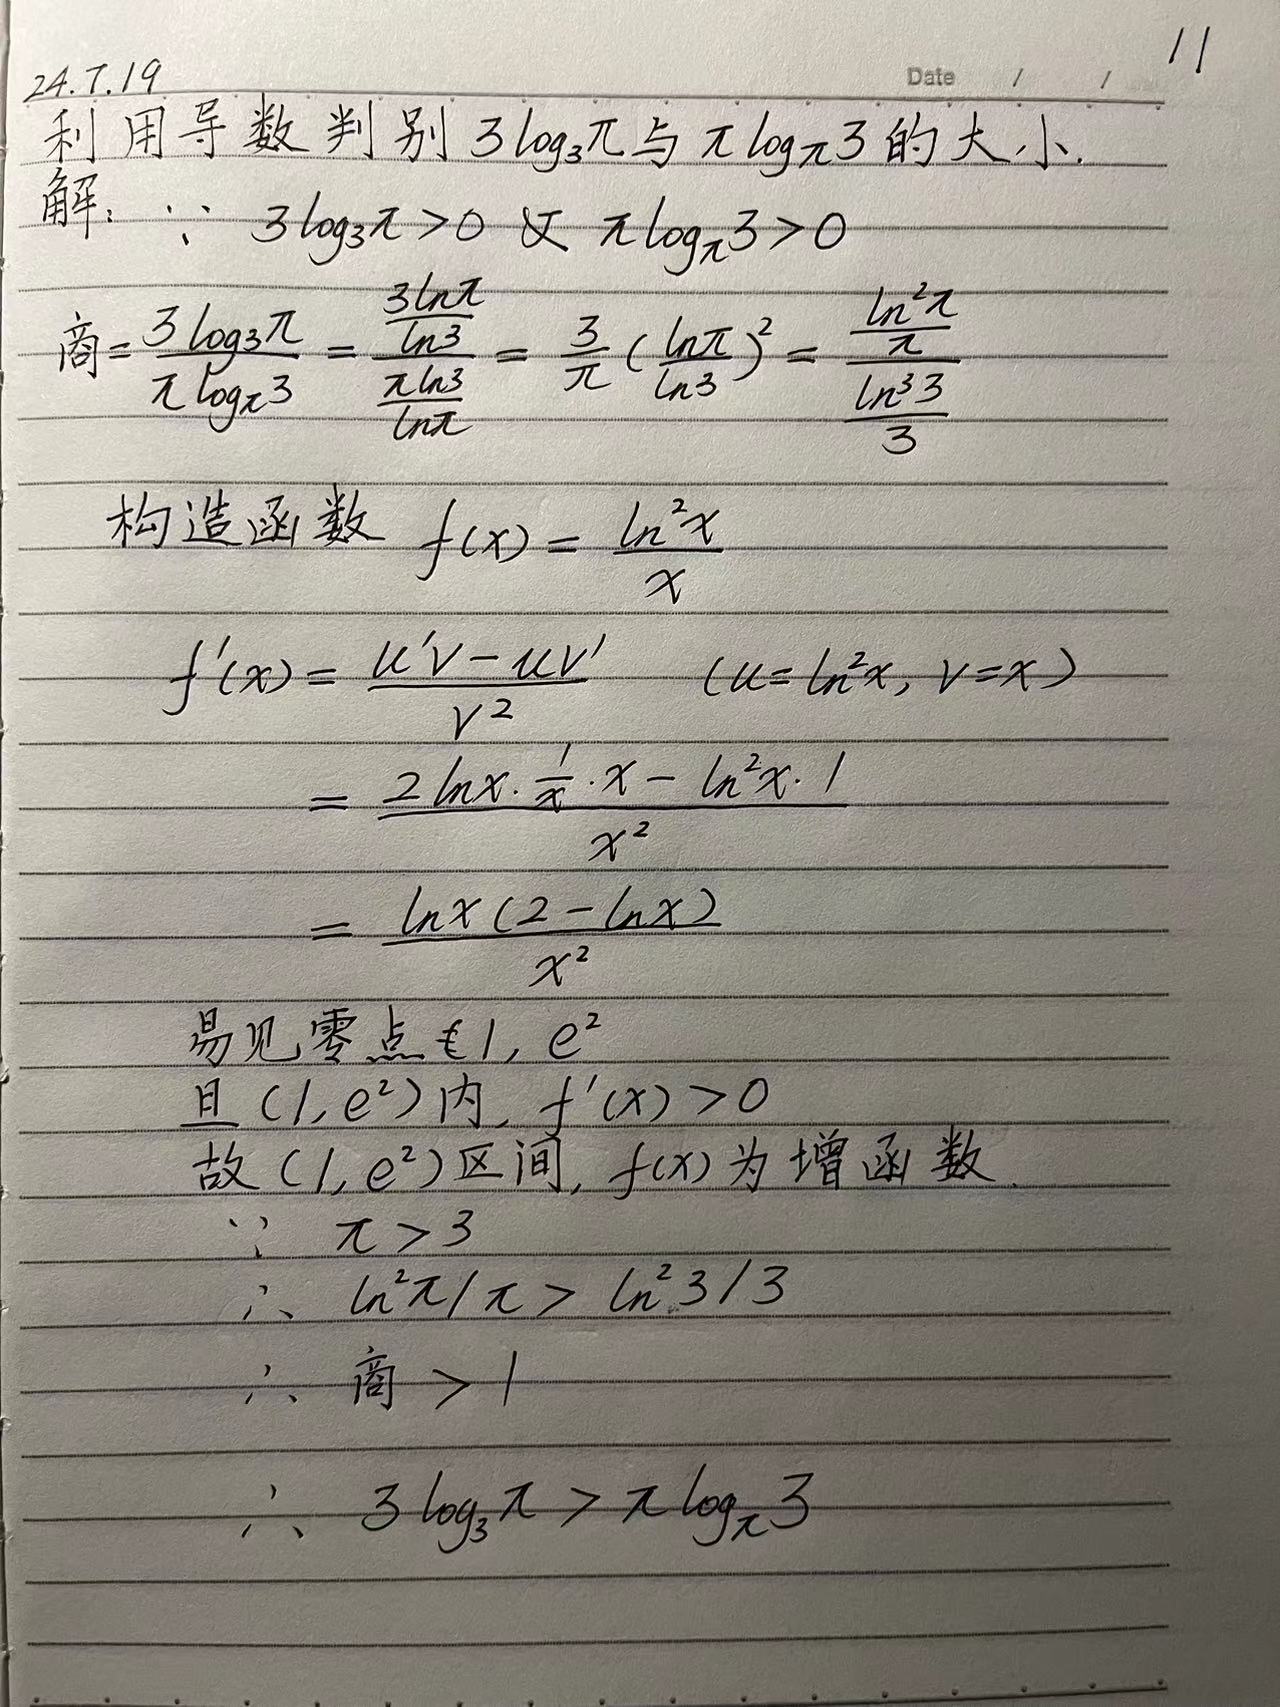 11
24.7.19
Date / /
利用导数判别 3log₃π与 πlog_π3 的大小.
解: ∵ 3log₃π>0 及 πlog_π3>0
商 = \frac{3log₃π}{πlog_π3} = \frac{\frac{3lnπ}{ln3}}{\frac{πln3}{lnπ}} = \frac{3}{π}(\frac{lnπ}{ln3})² = \frac{\frac{ln²π}{π}}{\frac{ln³3}{3}}
构造函数 f(x) = \frac{ln²x}{x}
f'(x) = \frac{u'v-uv'}{v²} (u=ln²x, v=x)
= \frac{2lnx·\frac{1}{x}·x-ln²x·1}{x²}
= \frac{lnx(2-lnx)}{x²}
易见零点 1, e²
且(1,e²)内, f'(x)>0
故(1,e²)区间, f(x)为增函数.
∵ π>3
∴ ln²π/π > ln²3/3
∴ 商 > 1
∴ 3log₃π > πlog_π3